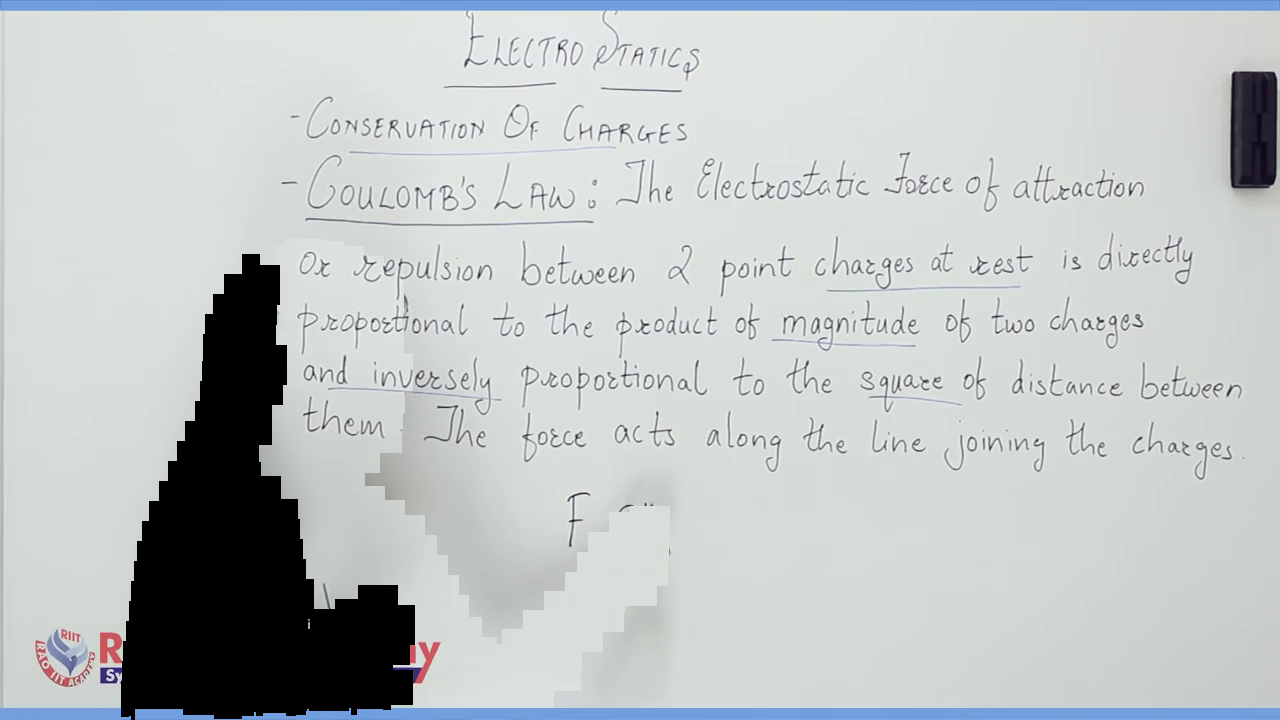 ELECTRO STATICS
- CONSERVATION OF CHARGES
- COULOMB'S LAW: The Electrostatic Force of attraction
or repulsion between 2 point charges at rest is directly
proportional to the product of magnitude of two charges
and inversely proportional to the square of distance between
them. The force acts along the line joining the charges.
F
RIIT
RAO IIT ACADEMY